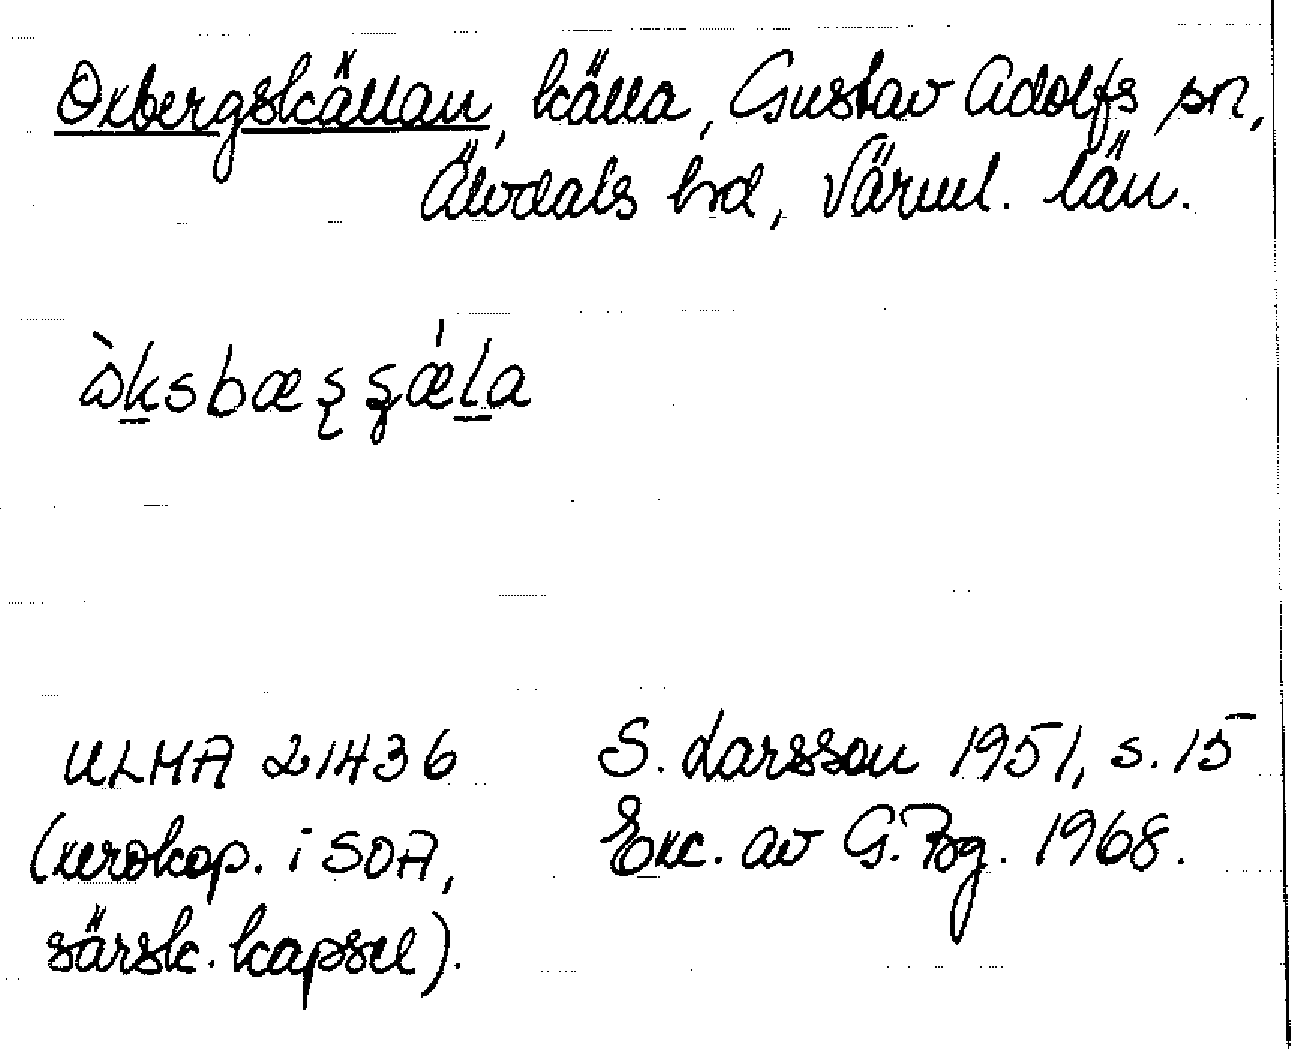 Oxbergskällan, källa, Gustav Adolfs sn,
Älvdals hd, Värml. län.
ULMA 21436
S. Larsson 1951, s. 15
(xerokop. i SOA,
Exc. av G. Bg. 1968.
särsk. kapsel).